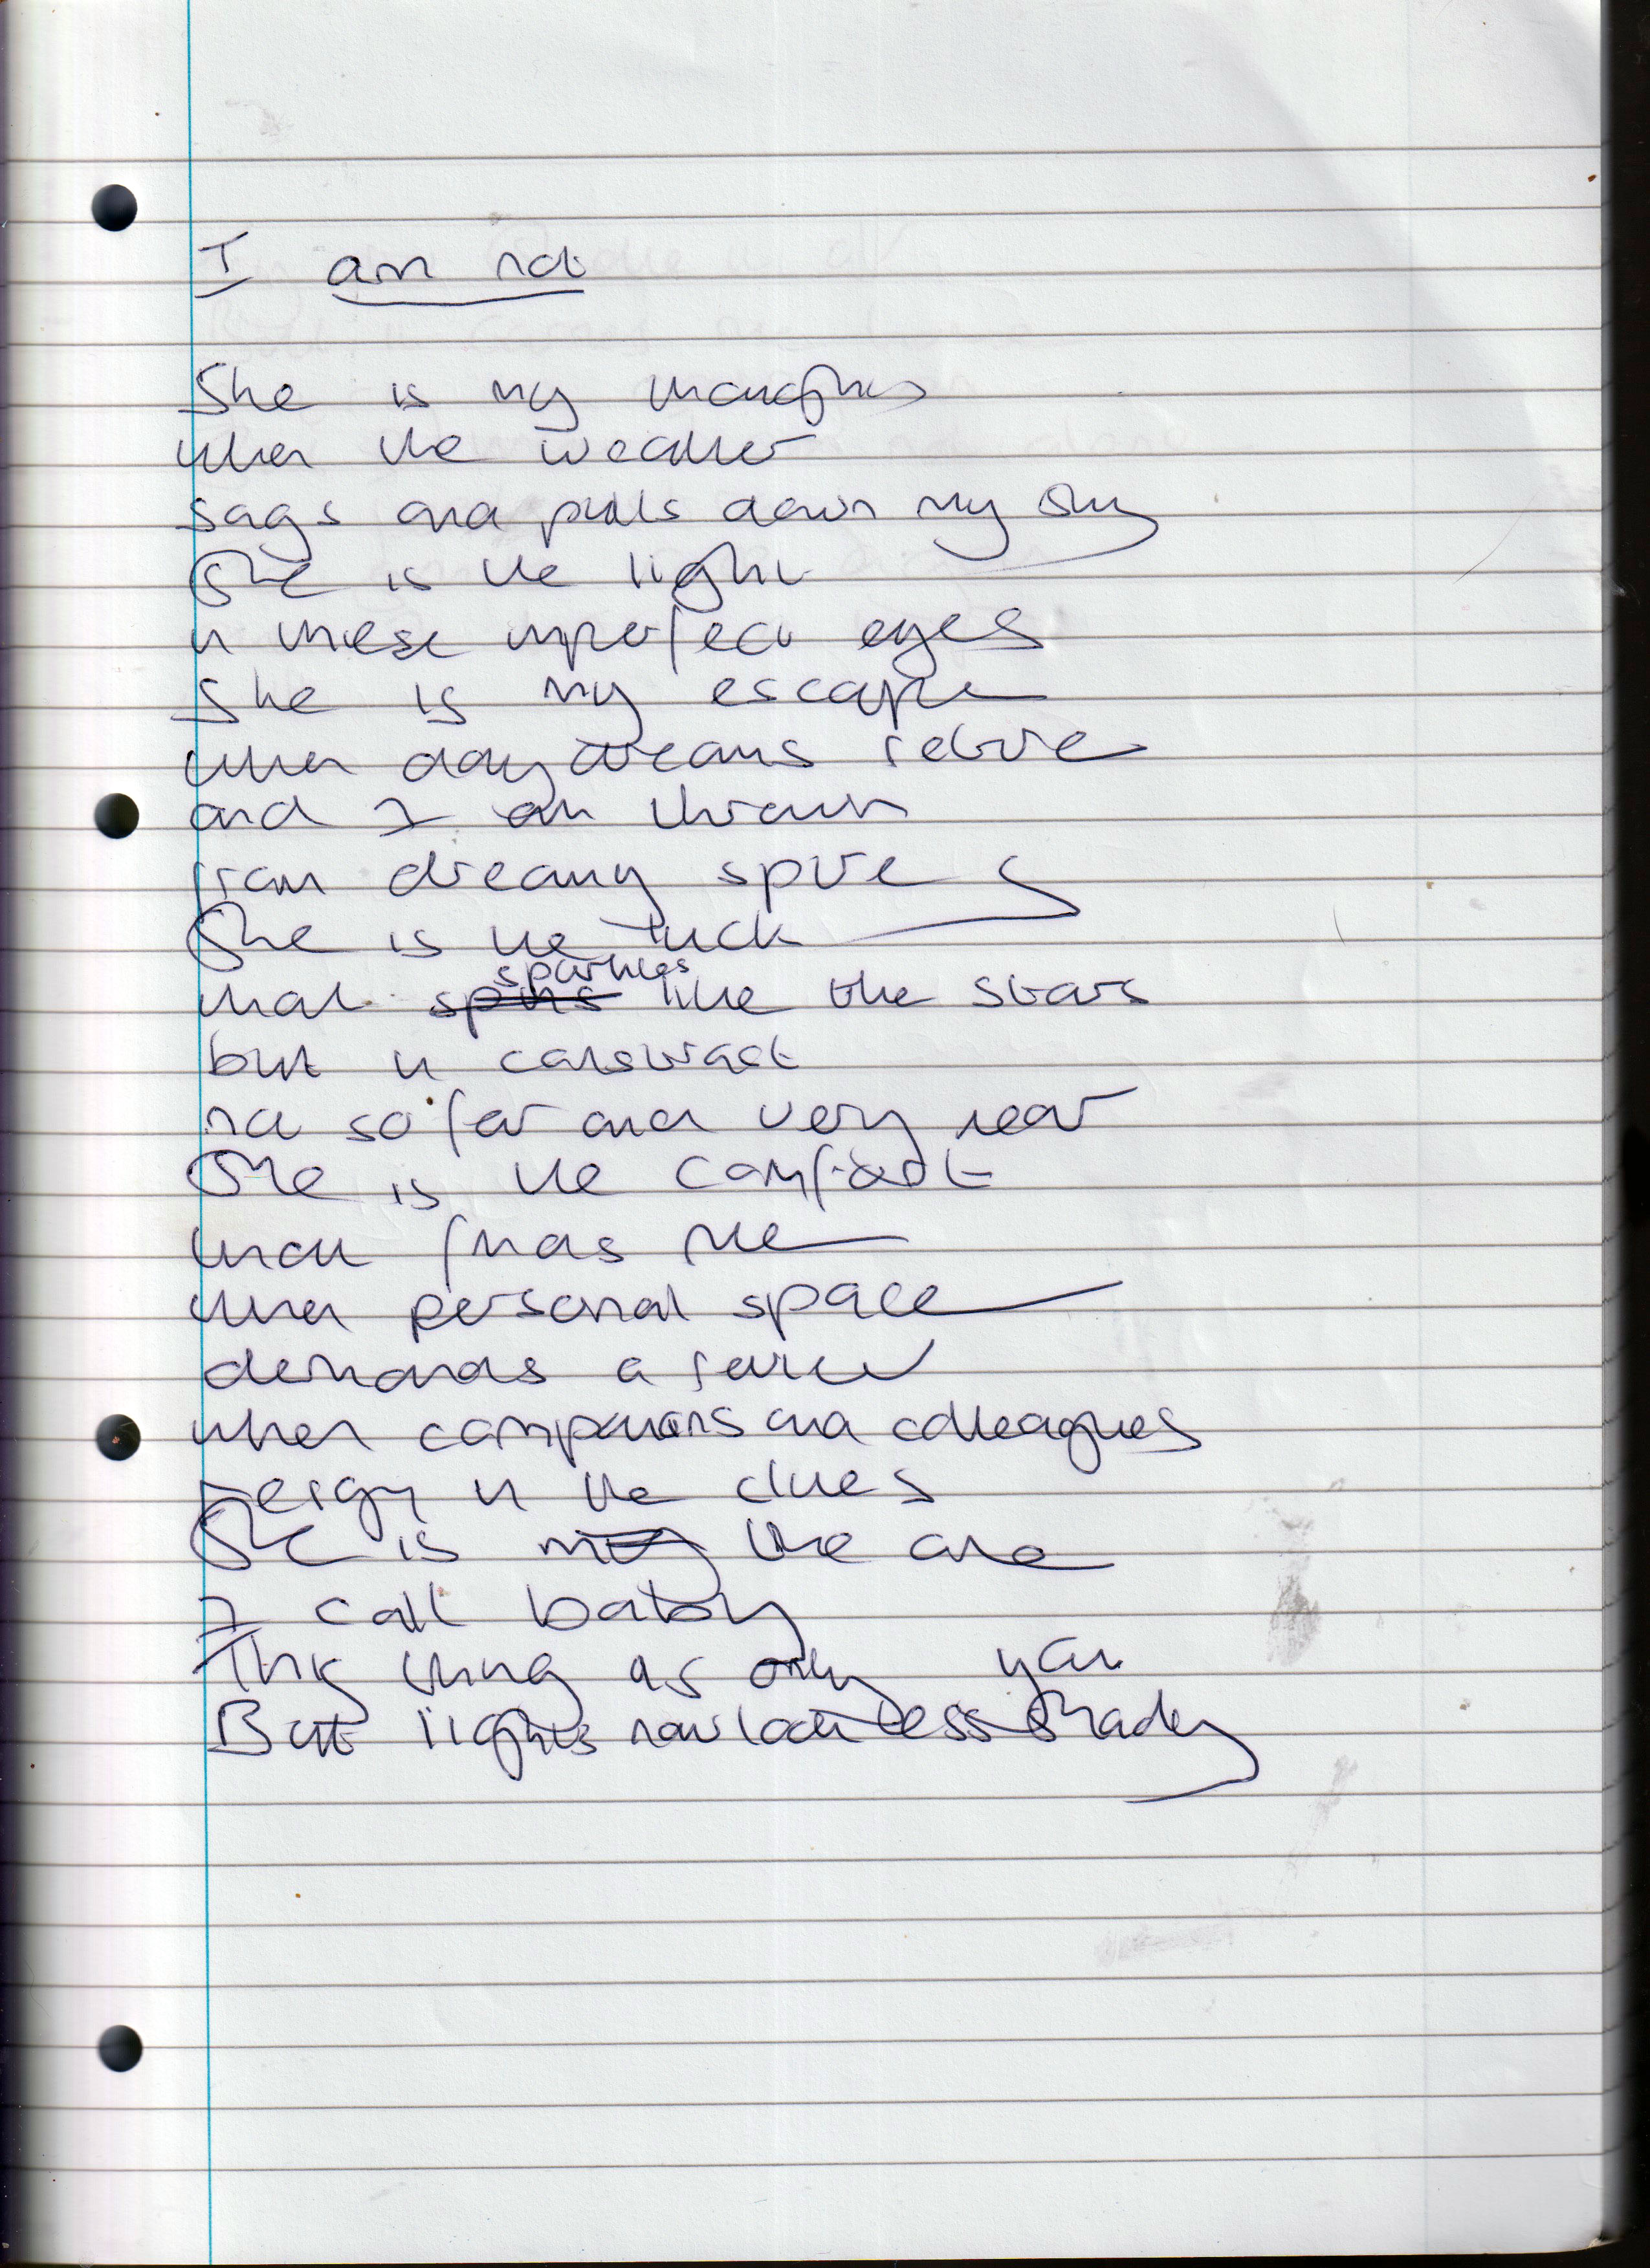 I am not
She is my thoughts
when the weather
sags and pulls down my sky
She is the light
in these imperfect eyes
She is my escape
when daydreams retire
and I am thrown
from dreamy spire
She is the luck
that spins sparkles like the stars
but in contrast
not so far and very near
She is the comfort
that finds me
when personal space
demands a
when companions and colleagues
reign in the clues
She is my the one
I call baby
This thing is only you
But lights now less shady